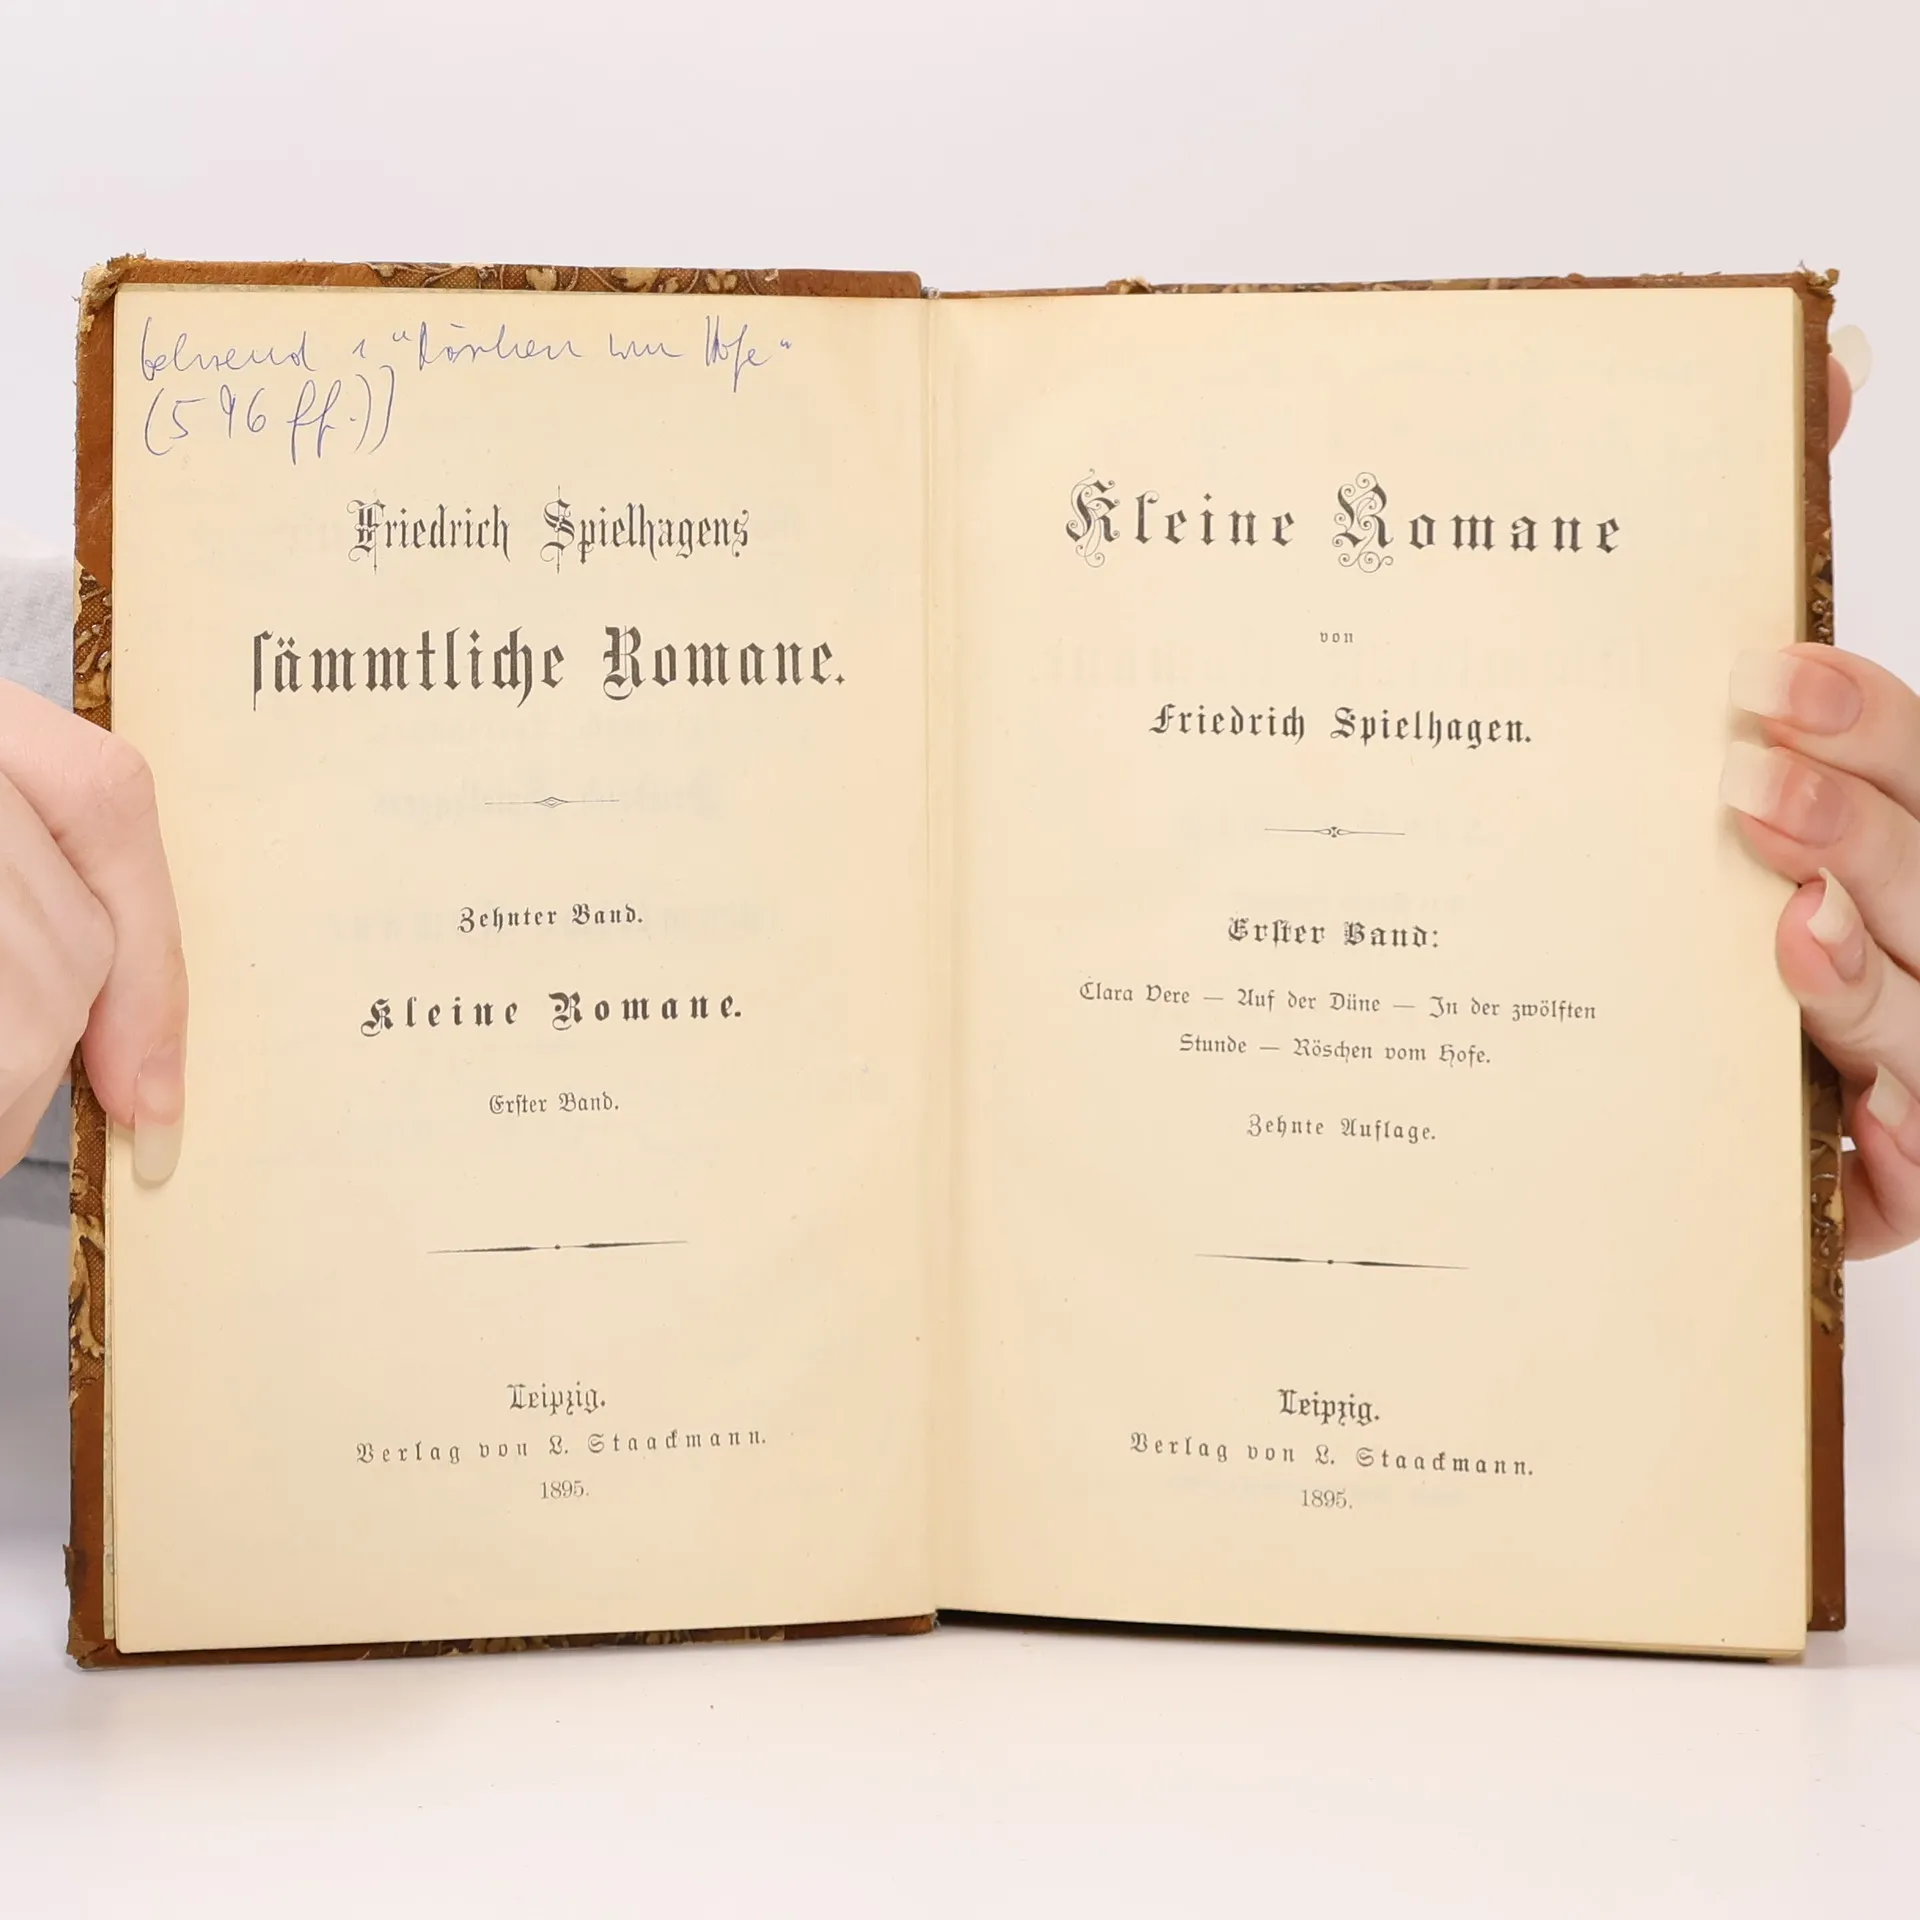 "Röschen vom Hofe"
(596 ff.)]
Friedrich Spielhagens
sämmtliche Romane.
Zehnter Band.
Kleine Romane.
Erster Band.
Leipzig.
Verlag von L. Staackmann.
1895.
Kleine Romane
von
Friedrich Spielhagen.
Erster Band:
Clara Vere — Auf der Düne — In der zwölften
Stunde — Röschen vom Hofe.
Zehnte Auflage.
Leipzig.
Verlag von L. Staackmann.
1895.